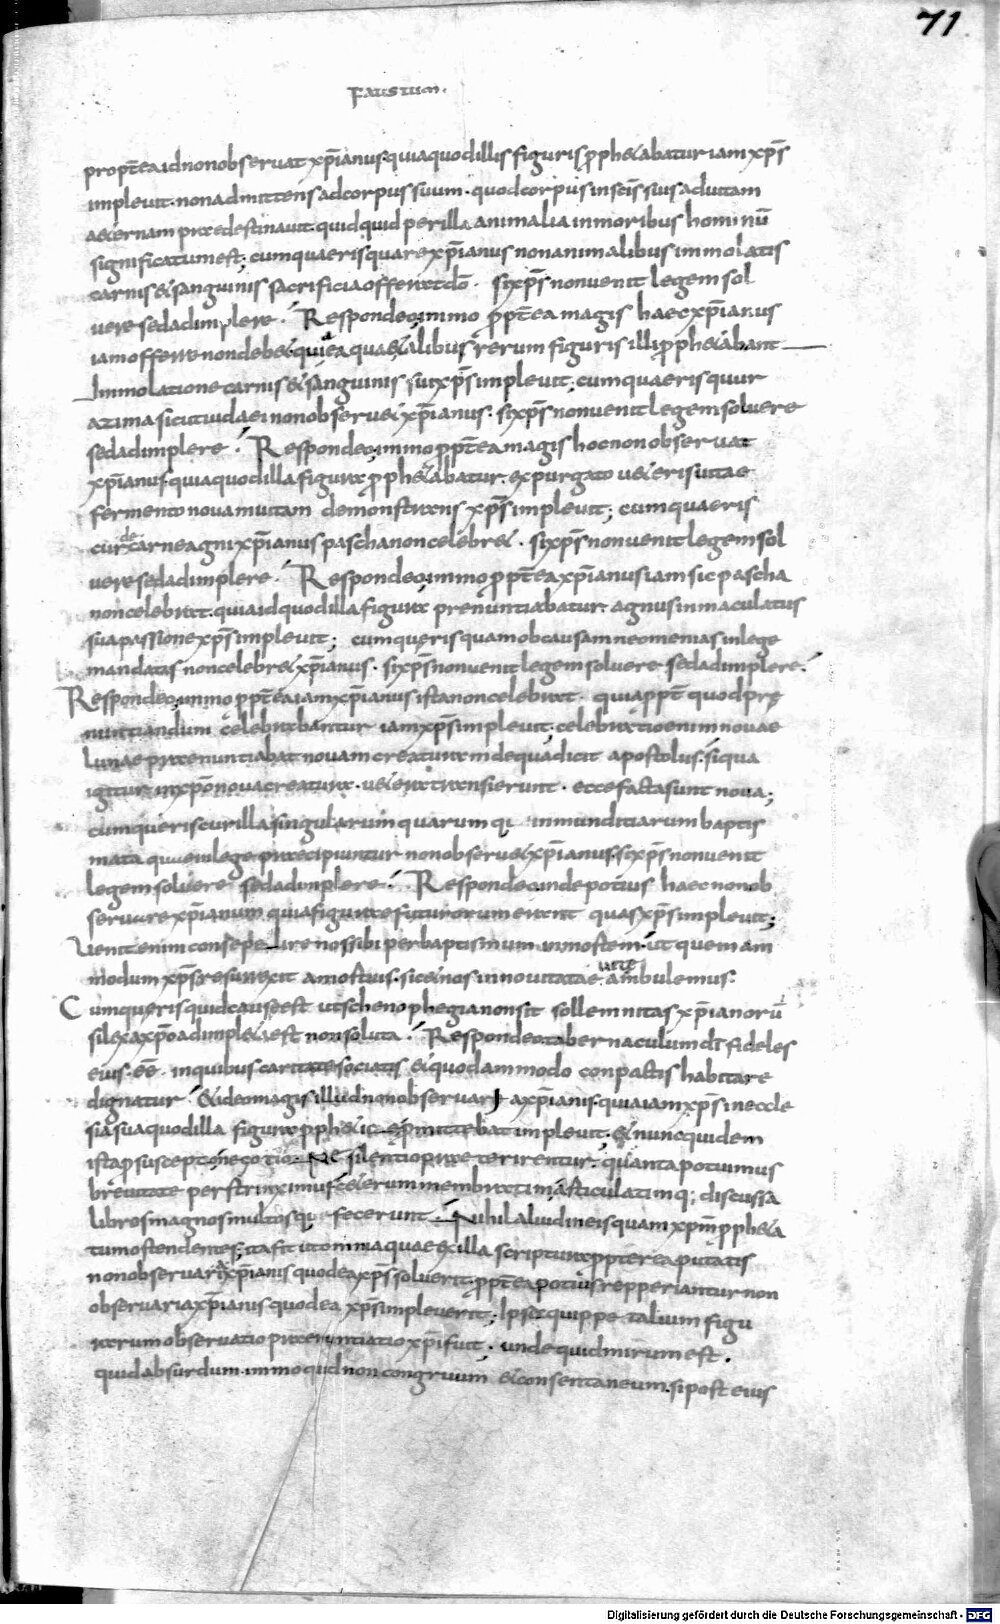 71
Faustum.
propt̄ea id non obseruat xp̄ianus quia quod illis figuris ꝓphetabatur iam xp̄s
impleuit. non admittens ad corpus suum. quod corpus in sc̄is suis ad uitam
aeternam praedestinauit quidquid per illa animalia in moribus hominū
significatum est; cum quaeris quare xp̄ianus non animalibus immolatis
carnis et sanguinis sacrificia offerat dō. si xp̄s non uenit legem sol
uere sed adimplere. Respondeo immo ꝓpt̄ea magis haec xp̄ianus
iam offerre non debet quia ea quae talibus rerum figuris illi ꝓphetabant
Immolatione carnis et sanguinis sui xp̄s impleuit; cum quaeris quur
azima sicut iudaei non obseruet xp̄ianus. si xp̄s non uenit legem soluere
sed adimplere. Respondeo immo ꝓpt̄ea magis hoc non obseruat
xp̄ianus quia quod illa figura ꝓphetabatur. expurgato ueteris uitae
fermento nouam uitam demonstrans xp̄s impleuit; cum quaeris
cur de carne agni xp̄ianus pascha non celebret. si xp̄s non uenit legem sol
uere sed adimplere. Respondeo immo ꝓpt̄ea xp̄ianus iam sic pascha
non celebrat. quia id quod illa figura prenuntiabatur. agnus inmaculatus
sua passione xp̄s impleuit; cum queris quam ob causam neomenias in lege
mandatas non celebret xp̄ianus. si xp̄s non uenit legem soluere sed adimplere.
Respondeo immo ꝓpt̄ea iam xp̄ianus ista non celebrat. quia ꝓpt̄ quod prę
nuntiandum celebrabantur iam xp̄s impleuit; celebratio enim nouae
lunae praenuntiabat nouam creaturam de qua dicit apostolus. si qua
igitur in xp̄o noua creatura. uetera transierunt. ecce facta sunt noua;
cum queris cur illa singularum quarumq; inmunditiarum baptis
mata quae in lege praecipiuntur non obseruet xp̄ianus. si xp̄s non uenit
legem soluere sed adimplere. Respondeo inde potius haec non ob
seruare xp̄ianum quia figurae futurorum erant quas xp̄s impleuit;
Uenit enim consepelire nos sibi per baptismum in mortem. ut quem am
modum xp̄s resurrexit a mortuis. sic et nos in nouitatae uitae ambulemus.
Cum queris quid causae est ut schenophegia non sit sollemnitas xp̄ianorū
si lex a xp̄o adimpleta est non soluta. Respondeo tabernaculum dī fideles
eius. eē. in quibus caritate sociatis et quodammodo conpactis habitare
dignatur et ideo magis illud non obseruari a xp̄ianis. quia iam xp̄s in eccle
sia sua quod illa figura ꝓphetice promittebat impleuit. et nunc quidem
ista ꝓ suscepto negotio. ne silentio praeterirentur. quanta potuimus
breuitate perstrinximus. ceterum membratim articulatimq; discussa
libros magnos multosque fecerunt. Nihil aliud in eis quam xp̄m ꝓpheta
tum ostendentes; ita fit ut omnia quae ex illa scriptura ꝓpterea putatis
non obseruari a xp̄ianis quod ea xp̄s soluerit. ꝓpt̄ea potius repperiantur non
obseruari a xp̄ianis quod ea xp̄s impleuerit; Ipsa quippe talium figu
rarum obseruatio praenuntiatio xp̄i fuit. unde quid mirum est.
quid absurdum. immo quid non congruum et consentaneum. si post eius
Digitalisierung gefördert durch die Deutsche Forschungsgemeinschaft - DFG